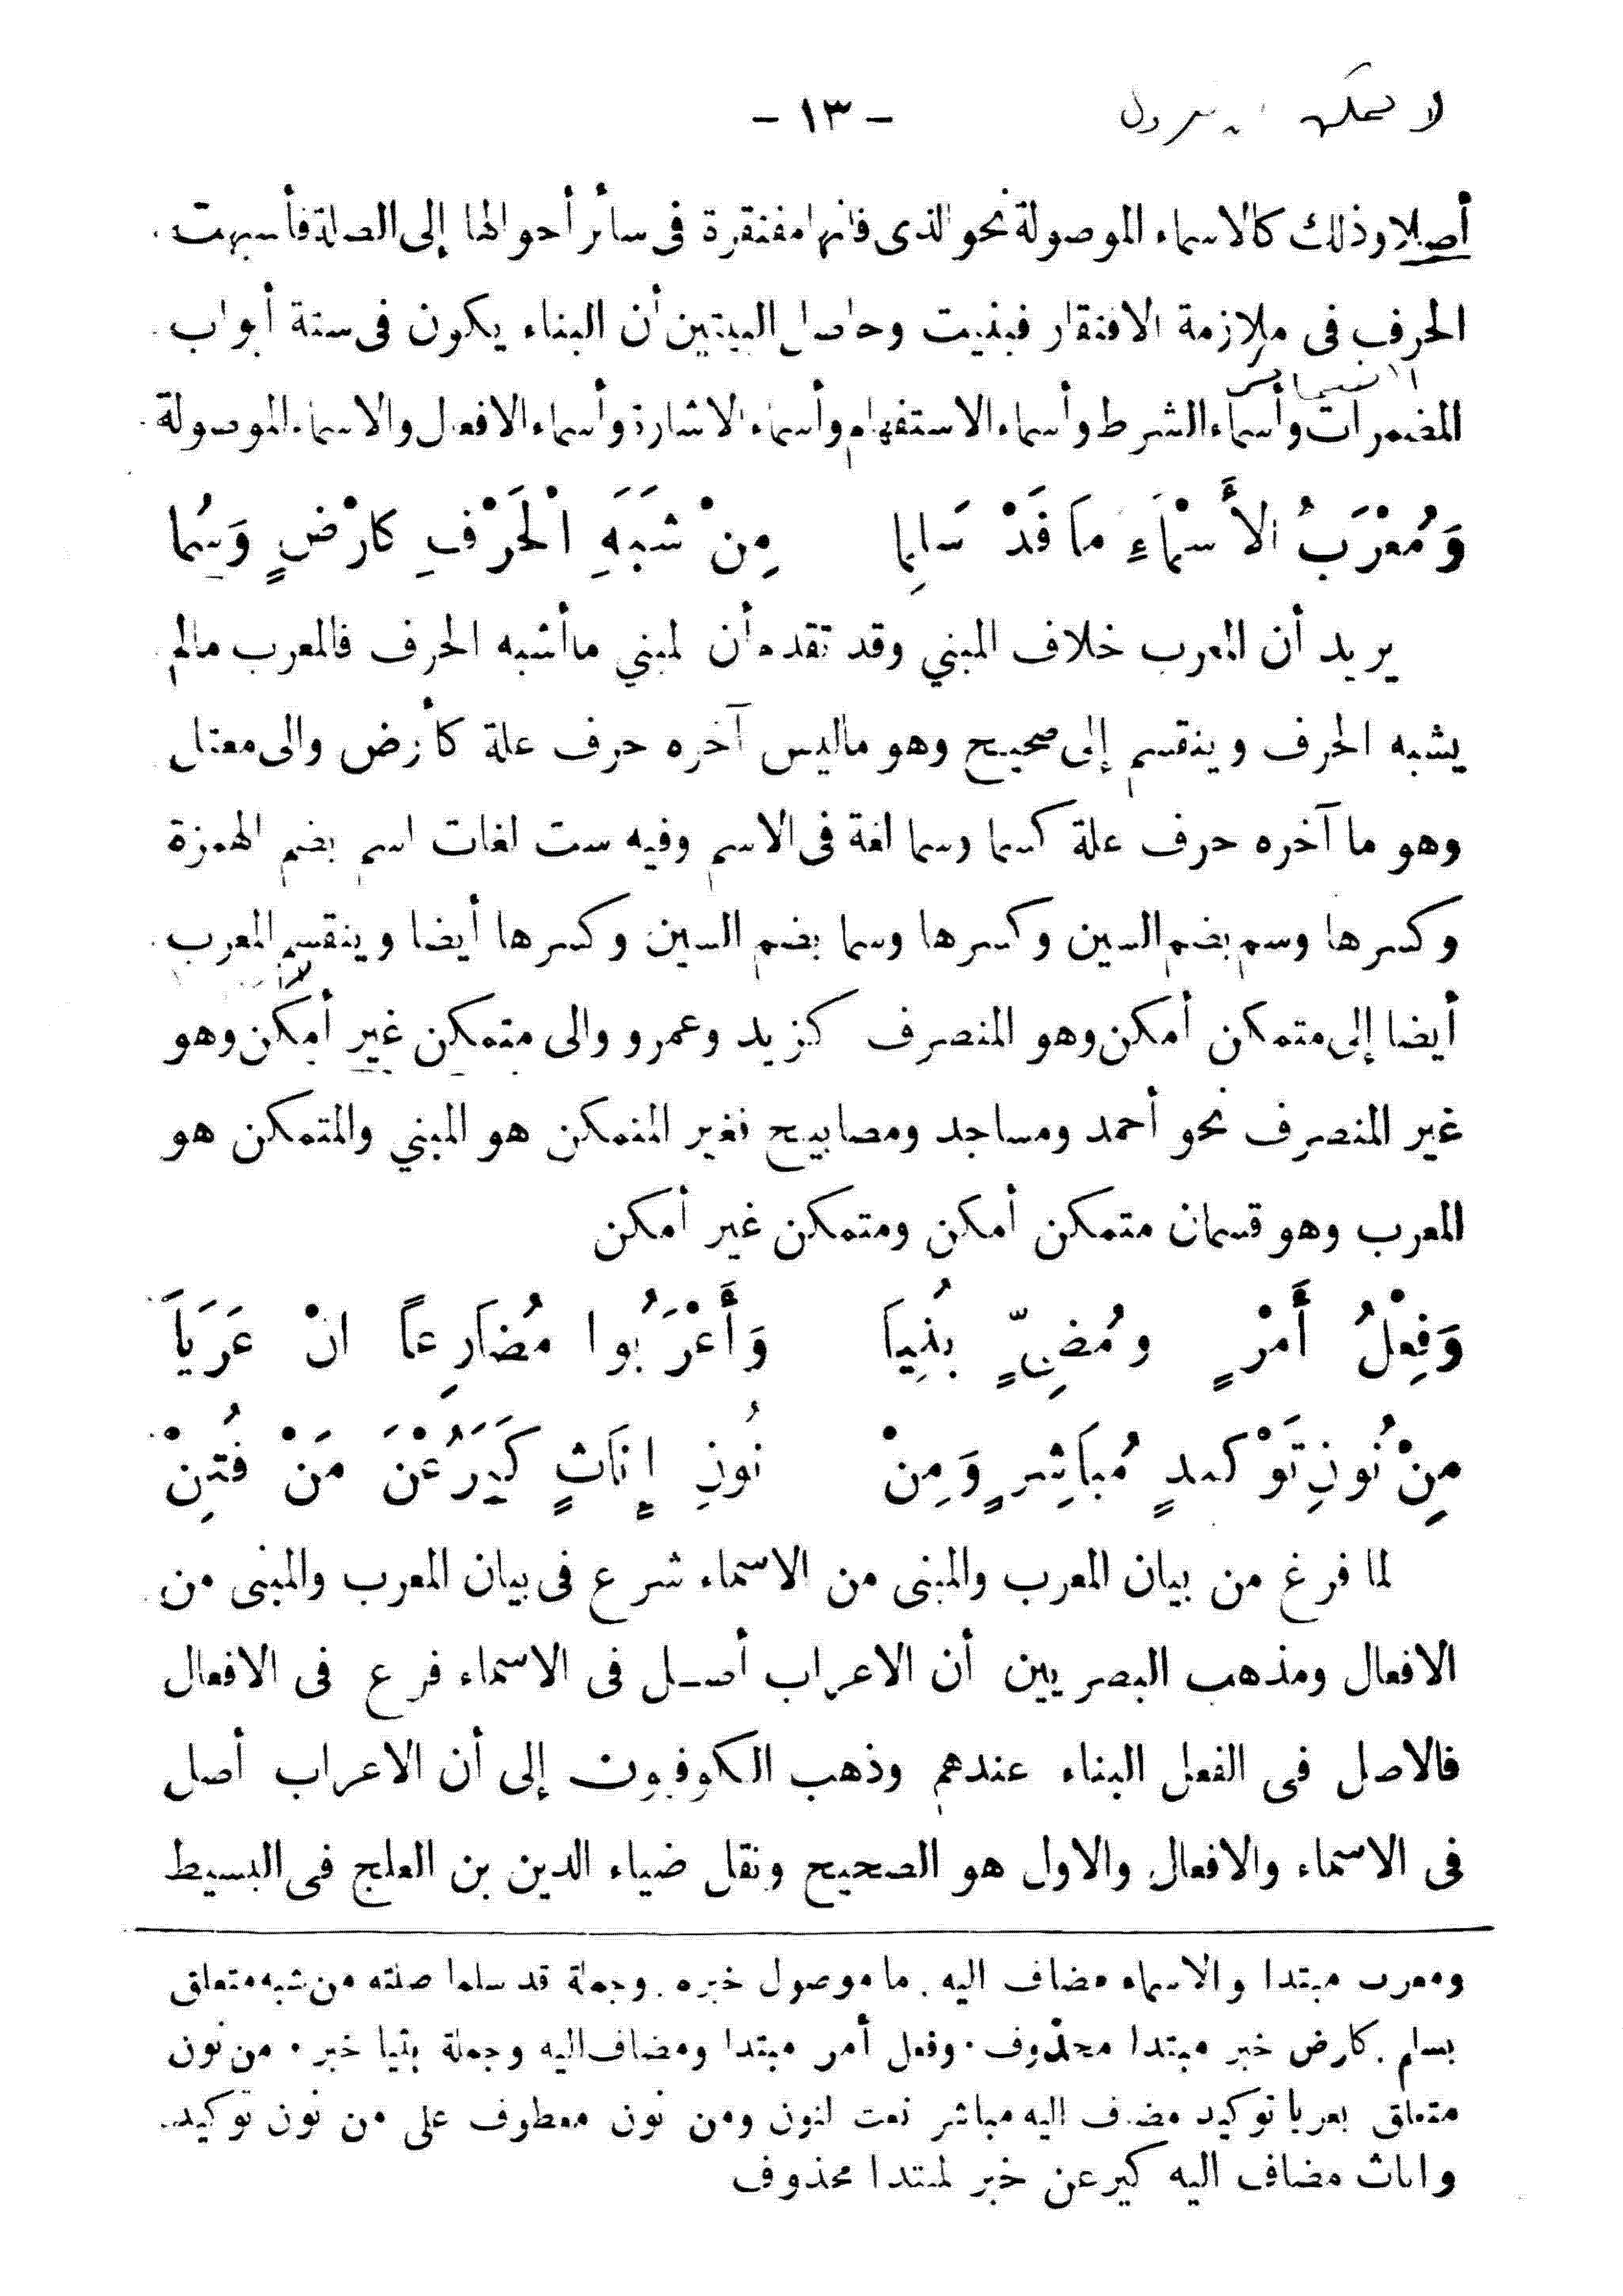 - ١٣ -
أصلا وذلك كالاسماء الموصولة نحو الذى فانها مفتقرة فى سائر أحوالها إلى الصلة فأشبهت
الحرف فى ملازمة الافتقار فبنيت وحاصل البيتين أن البناء يكون فى ستة أبواب
المضمرات وأسماء الشرط وأسماء الاستفهام وأسماء الاشارة وأسماء الافعال والاسماء الموصولة
وَمُعْرَبُ الأَسْمَاءِ مَا قَدْ سَلِمَا مِنْ شَبَهِ الْحَرْفِ كَارْضٍ وَسُمَا
يريد أن المعرب خلاف المبني وقد تقدم أن المبني ما أشبه الحرف فالمعرب مالم
يشبه الحرف وينقسم إلى صحيح وهو ماليس آخره حرف علة كأرض والى معتل
وهو ما آخره حرف علة كسما وسما لغة فى الاسم وفيه ست لغات اسم بضم الهمزة
وكسرها وسم بضم السين وكسرها وسما بضم السين وكسرها أيضا وينقسم المعرب
أيضا إلى متمكن أمكن وهو المنصرف كزيد وعمرو والى متمكن غير أمكن وهو
غير المنصرف نحو أحمد ومساجد ومصابيح فغير المتمكن هو المبني والمتمكن هو
المعرب وهو قسمان متمكن أمكن ومتمكن غير أمكن
وَفِعْلُ أَمْرٍ ومُضِىٍّ بُنِيَا وَأَعْرَبُوا مُضَارِعاً انْ عَرَيَا
مِنْ نُونِ تَوْكيدٍ مُبَاشِرٍ وَمِنْ نُونِ إِنَاثٍ كَيَرَعُنْ مَنْ فُتِنْ
لما فرغ من بيان المعرب والمبنى من الاسماء شرع فى بيان المعرب والمبنى من
الافعال ومذهب البصريين أن الاعراب أصل فى الاسماء فرع فى الافعال
فالاصل فى الفعل البناء عندهم وذهب الكوفيون إلى أن الاعراب أصل
فى الاسماء والافعال والاول هو الصحيح ونقل ضياء الدين بن العلج فى البسيط
ومعرب مبتدا والاسماء مضاف اليه. ما موصول خبره. وجملة قد سلما صلته من شبه متعلق
بسلم. كارض خبر مبتدا محذوف. وفعل أمر مبتدا ومضاف اليه وجملة بنيا خبر. من نون
متعلق بعريا توكيد مضاف اليه مباشر نعت لنون ومن نون معطوف على من نون توكيد
واناث مضاف اليه كيرعن خبر لمبتدا محذوف